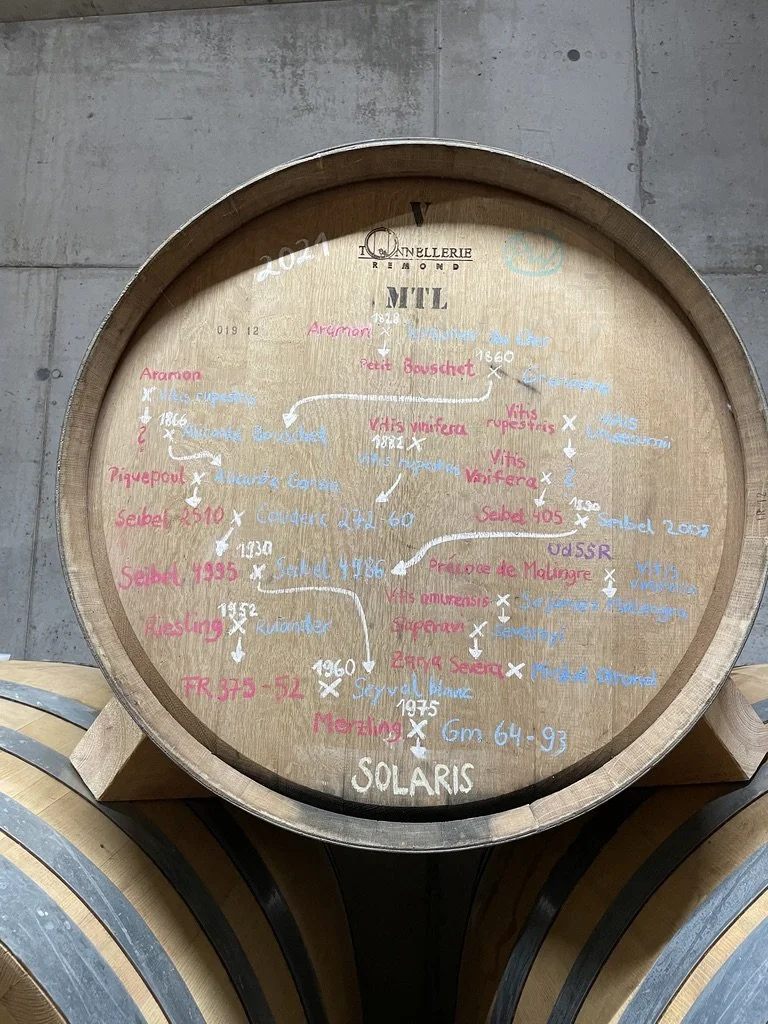 V
2021
TONNELLERIE
REMOND
MTL
019 12
1828
Aramon ×
Petit Bouschet × 1860
Aramon
× Vitis rupestris
Vitis rupestris ×
? × 1866 Alicante Bouschet
Vitis vinifera
1882 ×
Vitis rupestris
Vitis Vinifera × ?
Piquepoul × Alicante Ganzin
Seibel 2510 × Couderc 272-60
Seibel 405 × 1890 Seibel 2007
UdSSR
1930
Seibel 4995 × Seibel 4986
Précoce de Malingre ×
Vitis amurensis ×
1952
Riesling × Ruländer
Saperavi ×
Zarya Severa ×
1960
FR 375-52 × Seyval blanc
1975
Merzling × Gm 64-93
SOLARIS